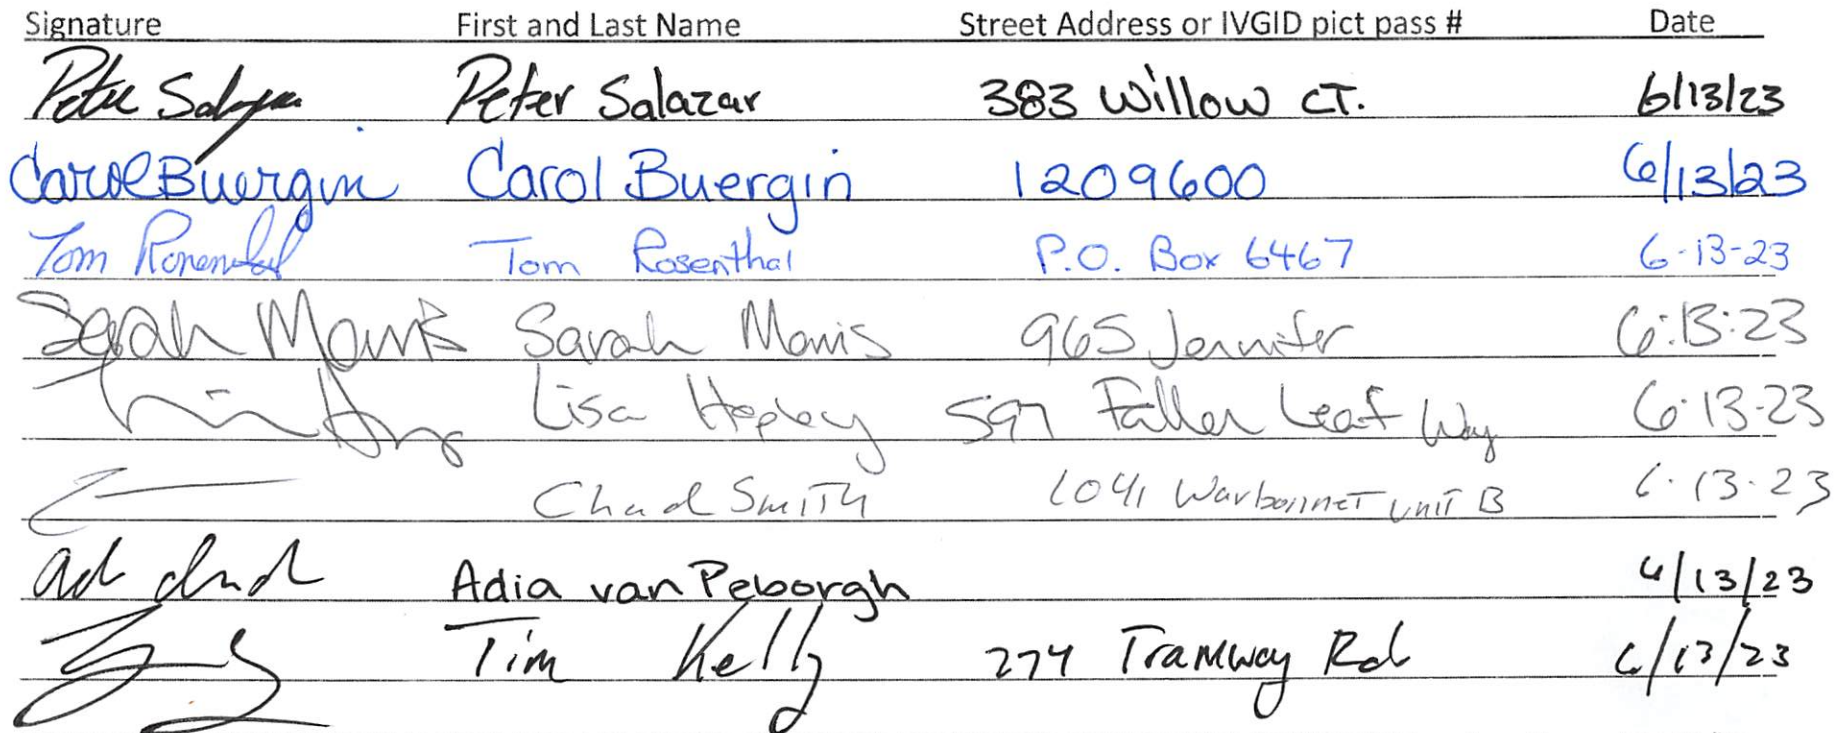 Signature First and Last Name Street Address or IVGID pict pass # Date
Peter Salazar 383 Willow CT. 6/13/23
Carol Buergin Carol Buergin 1209600 6/13/23
Tom Rosenthal Tom Rosenthal P.O. Box 6467 6-13-23
Sarah Morris Sarah Morris 965 Jennifer 6:13:23
Lisa 597 Fallen Leaf Way 6-13-23
Chad Smith 1041 Warbonnet unit B 6-13-23
Adia van Peborgh 6/13/23
Tim Kelly 274 Tramway Rd 6/13/23